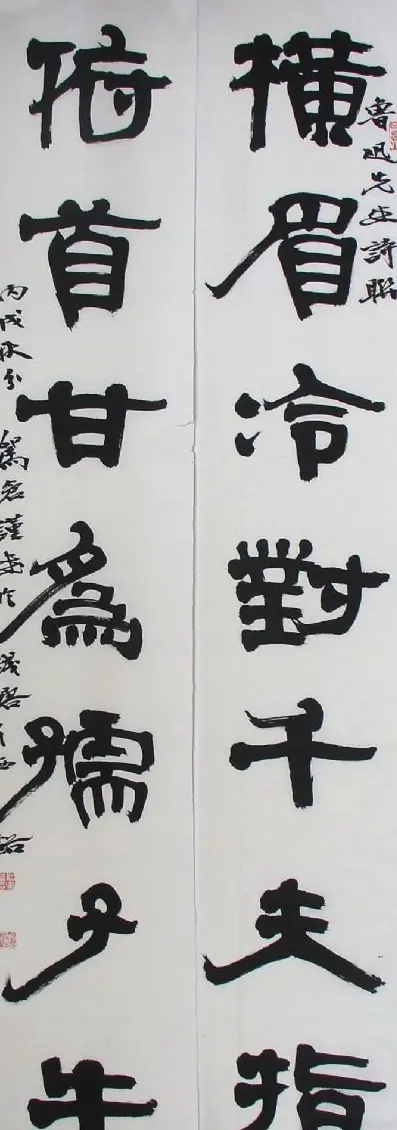 魯迅先生詩聯
橫眉冷對千夫指
俯首甘為孺子牛
丙戌秋分